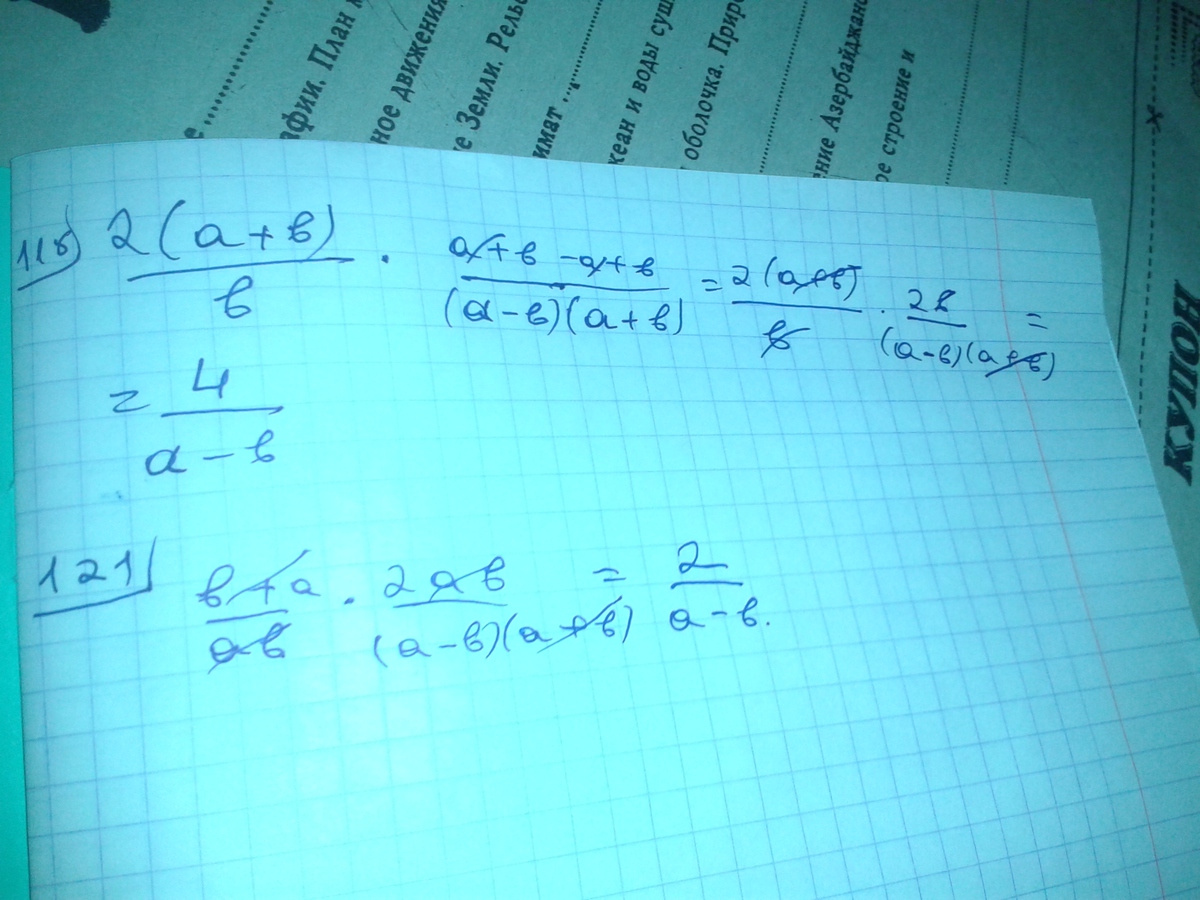 е
афии. План
ное движения
е Земли. Рель
имат
кеан и воды суш
оболочка. Приро
ение Азербайджанс
ое строение и
КУПОН
116) 2(a+b)/b · (a+b-a+b)/((a-b)(a+b)) = 2(a+b)/b · 2b/((a-b)(a+b)) =
= 4/(a-b)
121) (b+a)/(ab) · 2ab/((a-b)(a+b)) = 2/(a-b).